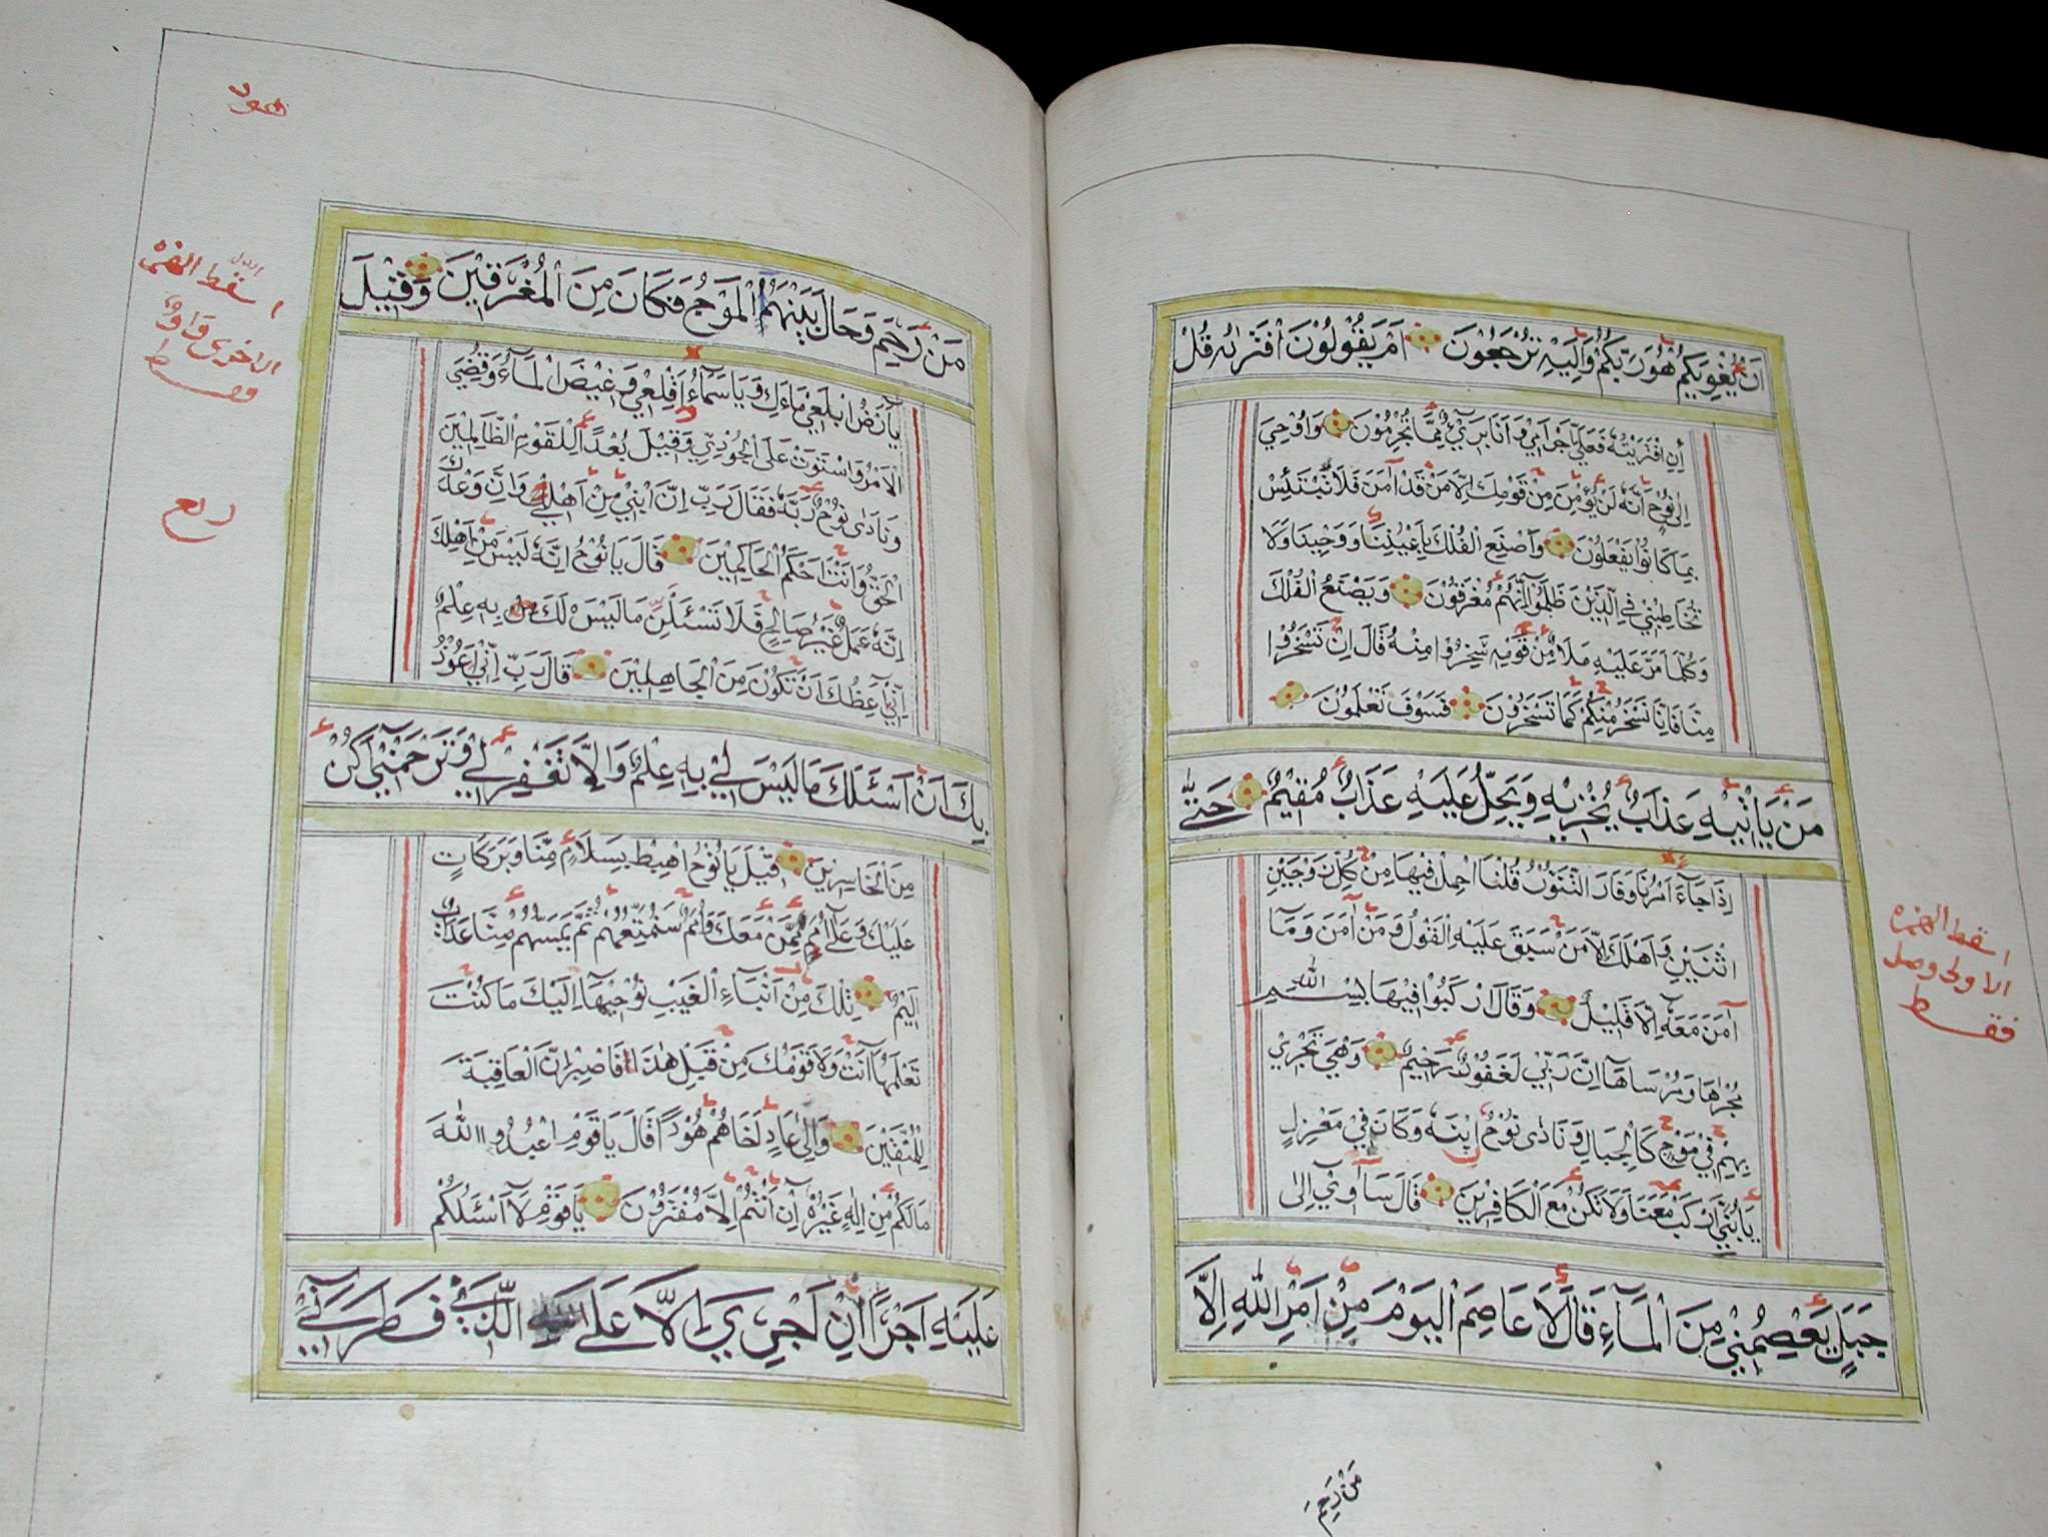 اَنْ يُغْوِيَكُمْ هُوَ رَبُّكُمْ وَاِلَيْهِ تُرْجَعُوْنَ اَمْ يَقُوْلُوْنَ افْتَرٰىهُ قُلْ
اِنِ افْتَرَيْتُهٗ فَعَلَيَّ اِجْرَامِيْ وَاَنَا بَرِيْٓءٌ مِمَّا تُجْرِمُوْنَ وَاُوْحِيَ
اِلٰى نُوْحٍ اَنَّهٗ لَنْ يُؤْمِنَ مِنْ قَوْمِكَ اِلَّا مَنْ قَدْ اٰمَنَ فَلَا تَبْتَئِسْ
بِمَا كَانُوْا يَفْعَلُوْنَ وَاصْنَعِ الْفُلْكَ بِاَعْيُنِنَا وَوَحْيِنَا وَلَا
تُخَاطِبْنِيْ فِي الَّذِيْنَ ظَلَمُوْا اِنَّهُمْ مُغْرَقُوْنَ وَيَصْنَعُ الْفُلْكَ
وَكُلَّمَا مَرَّ عَلَيْهِ مَلَاٌ مِنْ قَوْمِهٖ سَخِرُوْا مِنْهُ قَالَ اِنْ تَسْخَرُوْا
مِنَّا فَاِنَّا نَسْخَرُ مِنْكُمْ كَمَا تَسْخَرُوْنَ فَسَوْفَ تَعْلَمُوْنَ
مَنْ يَأْتِيْهِ عَذَابٌ يُخْزِيْهِ وَيَحِلُّ عَلَيْهِ عَذَابٌ مُقِيْمٌ حَتّٰى
اِذَا جَآءَ اَمْرُنَا وَفَارَ التَّنُّوْرُ قُلْنَا احْمِلْ فِيْهَا مِنْ كُلٍّ زَوْجَيْنِ
اثْنَيْنِ وَاَهْلَكَ اِلَّا مَنْ سَبَقَ عَلَيْهِ الْقَوْلُ وَمَنْ اٰمَنَ وَمَآ
اٰمَنَ مَعَهٗٓ اِلَّا قَلِيْلٌ وَقَالَ ارْكَبُوْا فِيْهَا بِسْمِ اللّٰهِ
مَجْرٰىهَا وَمُرْسَاهَآ اِنَّ رَبِّيْ لَغَفُوْرٌ رَحِيْمٌ وَهِيَ تَجْرِيْ
بِهِمْ فِيْ مَوْجٍ كَالْجِبَالِ وَنَادٰى نُوْحٌ ابْنَهٗ وَكَانَ فِيْ مَعْزِلٍ
يَا بُنَيَّ ارْكَبْ مَعَنَا وَلَا تَكُنْ مَعَ الْكَافِرِيْنَ قَالَ سَاٰوِيْٓ اِلٰى
جَبَلٍ يَعْصِمُنِيْ مِنَ الْمَآءِ قَالَ لَا عَاصِمَ الْيَوْمَ مِنْ اَمْرِ اللّٰهِ اِلَّا
مَنْ رَحِمَ
اسقط الهمزه
الاولى وصل
فقط
هود
مَنْ رَحِمَ وَحَالَ بَيْنَهُمَا الْمَوْجُ فَكَانَ مِنَ الْمُغْرَقِيْنَ وَقِيْلَ
يَآ اَرْضُ ابْلَعِيْ مَاءَكِ وَيَا سَمَآءُ اَقْلِعِيْ وَغِيْضَ الْمَآءُ وَقُضِيَ
الْاَمْرُ وَاسْتَوَتْ عَلَى الْجُوْدِيِّ وَقِيْلَ بُعْدًا لِلْقَوْمِ الظَّالِمِيْنَ
وَنَادٰى نُوْحٌ رَبَّهٗ فَقَالَ رَبِّ اِنَّ ابْنِيْ مِنْ اَهْلِيْ وَاِنَّ وَعْدَكَ
الْحَقُّ وَاَنْتَ اَحْكَمُ الْحَاكِمِيْنَ قَالَ يَا نُوْحُ اِنَّهٗ لَيْسَ مِنْ اَهْلِكَ
اِنَّهٗ عَمَلٌ غَيْرُ صَالِحٍ فَلَا تَسْئَلْنِ مَا لَيْسَ لَكَ بِهٖ عِلْمٌ
اِنِّيْٓ اَعِظُكَ اَنْ تَكُوْنَ مِنَ الْجَاهِلِيْنَ قَالَ رَبِّ اِنِّيْٓ اَعُوْذُ
بِكَ اَنْ اَسْئَلَكَ مَا لَيْسَ لِيْ بِهٖ عِلْمٌ وَاِلَّا تَغْفِرْ لِيْ وَتَرْحَمْنِيْٓ اَكُنْ
مِنَ الْخَاسِرِيْنَ قِيْلَ يَا نُوْحُ اهْبِطْ بِسَلَامٍ مِنَّا وَبَرَكَاتٍ
عَلَيْكَ وَعَلٰٓى اُمَمٍ مِمَّنْ مَعَكَ وَاُمَمٌ سَنُمَتِّعُهُمْ ثُمَّ يَمَسُّهُمْ مِنَّا عَذَابٌ
اَلِيْمٌ تِلْكَ مِنْ اَنْبَآءِ الْغَيْبِ نُوْحِيْهَآ اِلَيْكَ مَا كُنْتَ
تَعْلَمُهَآ اَنْتَ وَلَا قَوْمُكَ مِنْ قَبْلِ هٰذَا فَاصْبِرْ اِنَّ الْعَاقِبَةَ
لِلْمُتَّقِيْنَ وَاِلٰى عَادٍ اَخَاهُمْ هُوْدًا قَالَ يَا قَوْمِ اعْبُدُوا اللّٰهَ
مَا لَكُمْ مِنْ اِلٰهٍ غَيْرُهٗ اِنْ اَنْتُمْ اِلَّا مُفْتَرُوْنَ يَا قَوْمِ لَآ اَسْئَلُكُمْ
عَلَيْهِ اَجْرًا اِنْ اَجْرِيَ اِلَّا عَلَى الَّذِيْ فَطَرَنِيْٓ
اسقط الهمزه
الاخرى واو
فقط
ربع